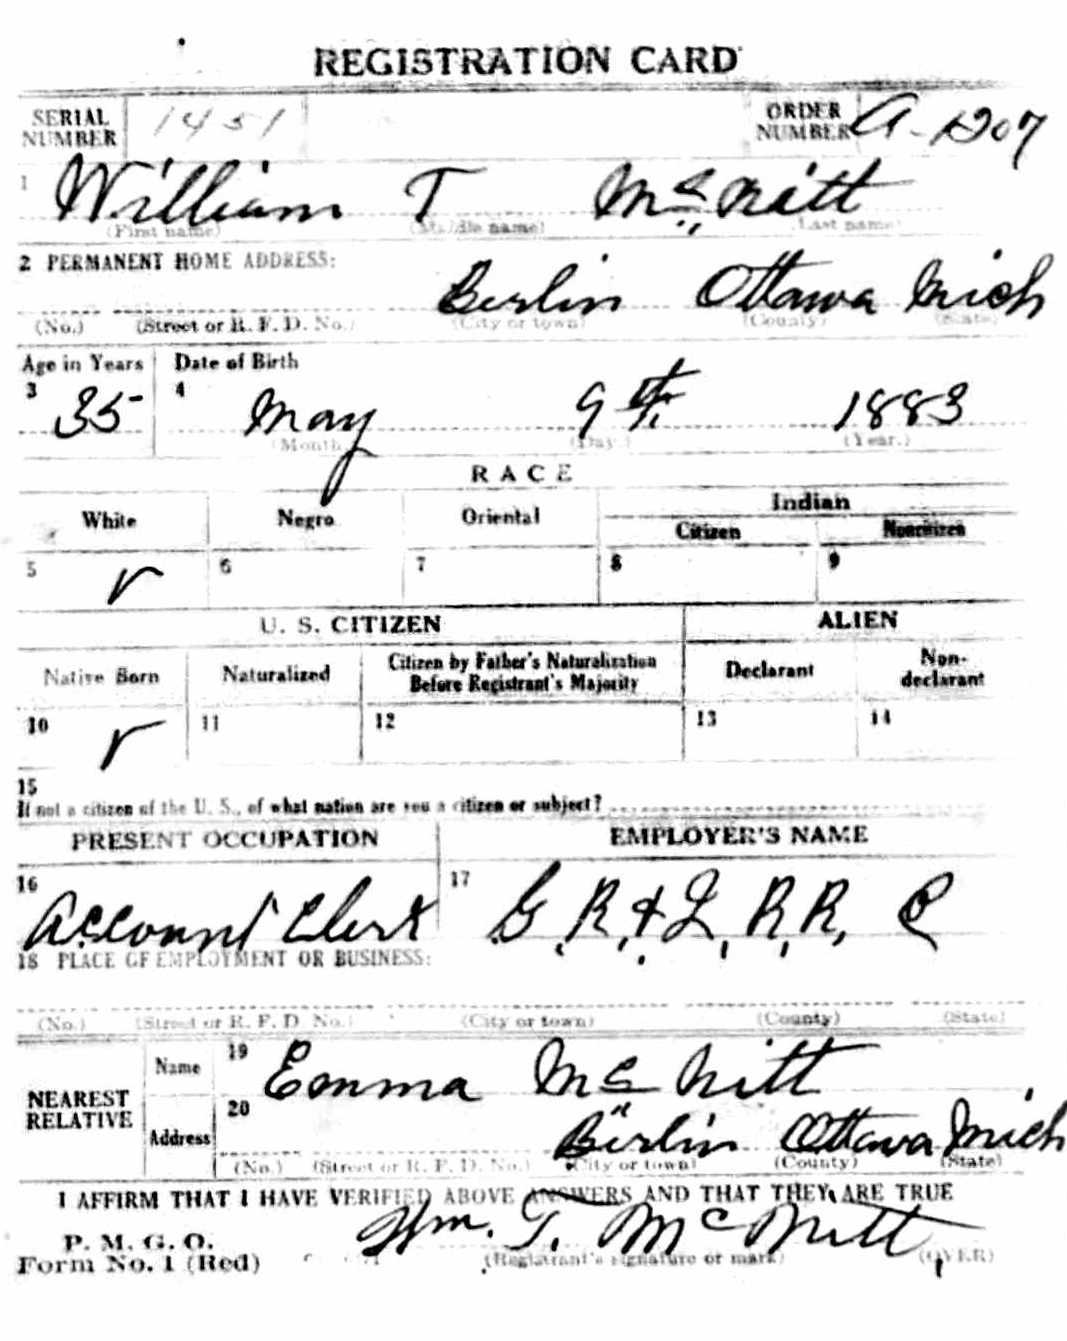 REGISTRATION CARD
SERIAL NUMBER 1451 ORDER NUMBER A-1207
1 William T McNitt
(First name) (Middle name) (Last name)
2 PERMANENT HOME ADDRESS:
Berlin Ottawa Mich
(No.) (Street or R. F. D. No.) (City or town) (County) (State)
Age in Years Date of Birth
3 35 4 May 9th 1883
(Month) (Day.) (Year.)
RACE
White Negro Oriental Indian
Citizen Noncitizen
5 ✓ 6 7 8 9
U. S. CITIZEN ALIEN
Native Born Naturalized Citizen by Father's Naturalization Before Registrant's Majority Declarant Non-declarant
10 ✓ 11 12 13 14
15
If not a citizen of the U. S., of what nation are you a citizen or subject?
PRESENT OCCUPATION EMPLOYER'S NAME
16 Account Clerk 17 G. R. & I. R. R. C
18 PLACE OF EMPLOYMENT OR BUSINESS:
(No.) (Street or R. F. D. No.) (City or town) (County) (State)
NEAREST RELATIVE Name 19 Emma McNitt
Address 20 Berlin Ottawa Mich
(No.) (Street or R. F. D. No.) (City or town) (County) (State)
I AFFIRM THAT I HAVE VERIFIED ABOVE ANSWERS AND THAT THEY ARE TRUE
P. M. G. O.
Form No. 1 (Red) Wm. T. McNitt
(Registrant's signature or mark) (OVER)